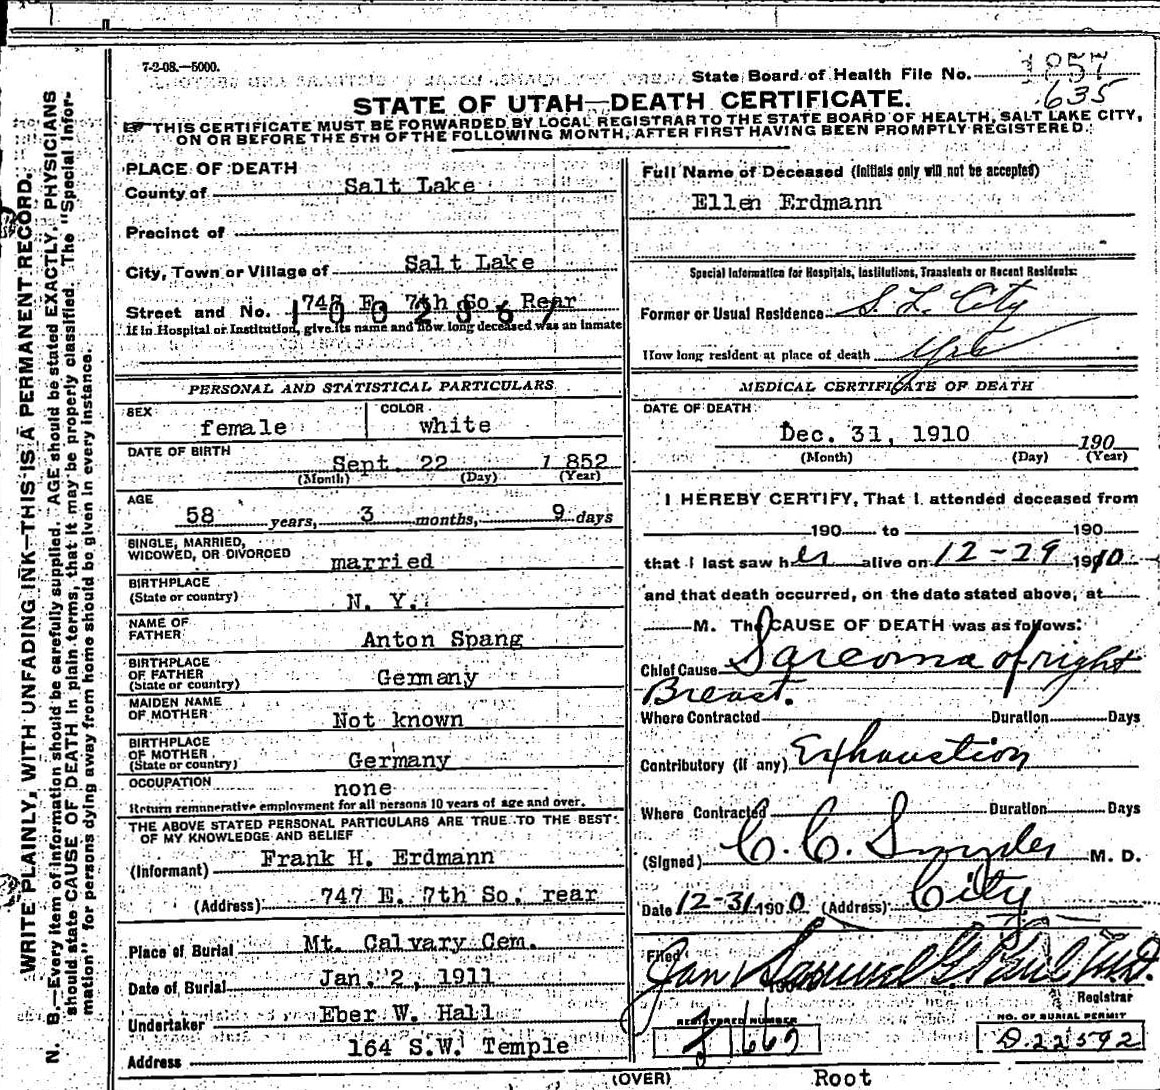 7-2-08.—5000.
State Board of Health File No. 1857
635
STATE OF UTAH—DEATH CERTIFICATE.
THIS CERTIFICATE MUST BE FORWARDED BY LOCAL REGISTRAR TO THE STATE BOARD OF HEALTH, SALT LAKE CITY,
ON OR BEFORE THE 5TH OF THE FOLLOWING MONTH, AFTER FIRST HAVING BEEN PROMPTLY REGISTERED.
WRITE PLAINLY, WITH UNFADING INK—THIS IS A PERMANENT RECORD.
N. B.—Every item of information should be carefully supplied. AGE should be stated EXACTLY, PHYSICIANS
should state CAUSE OF DEATH in plain terms, that it may be properly classified. The "Special Infor-
mation" for persons dying away from home should be given in every instance.
PLACE OF DEATH
County of Salt Lake
Precinct of
City, Town or Village of Salt Lake
Street and No. 747 E. 7th So. Rear
1002367
if in Hospital or Institution, give its name and how long deceased was an inmate
PERSONAL AND STATISTICAL PARTICULARS
SEX female COLOR white
DATE OF BIRTH Sept. 22 1852
(Month) (Day) (Year)
AGE
58 years, 3 months, 9 days
SINGLE, MARRIED,
WIDOWED, OR DIVORCED married
BIRTHPLACE
(State or country) N. Y.
NAME OF
FATHER Anton Spang
BIRTHPLACE
OF FATHER
(State or country) Germany
MAIDEN NAME
OF MOTHER Not known
BIRTHPLACE
OF MOTHER
(State or country) Germany
OCCUPATION none
Return remunerative employment for all persons 10 years of age and over.
THE ABOVE STATED PERSONAL PARTICULARS ARE TRUE TO THE BEST
OF MY KNOWLEDGE AND BELIEF
(Informant) Frank H. Erdmann
(Address) 747 E. 7th So. rear
Place of Burial Mt. Calvary Cem.
Date of Burial Jan. 2, 1911
Undertaker Eber W. Hall
Address 164 S.W. Temple
Full Name of Deceased (Initials only will not be accepted)
Ellen Erdmann
Special Information for Hospitals, Institutions, Transients or Recent Residents:
Former or Usual Residence S. L. City
How long resident at place of death Yrs
MEDICAL CERTIFICATE OF DEATH
DATE OF DEATH
Dec. 31, 1910 190
(Month) (Day) (Year)
I HEREBY CERTIFY, That I attended deceased from
190 to 190
that I last saw her alive on 12-29 1910
and that death occurred, on the date stated above, at
M. The CAUSE OF DEATH was as follows:
Chief Cause Sarcoma of right
Breast.
Where Contracted Duration Days
Contributory (if any) Exhaustion
Where Contracted Duration Days
(Signed) C. C. Snyder M. D.
Date 12-31 1900 (Address) City
Filed Jan Samuel G. Paul M.D.
Registrar
REGISTERED NUMBER
NO. OF BURIAL PERMIT
D 22592
(OVER) Root